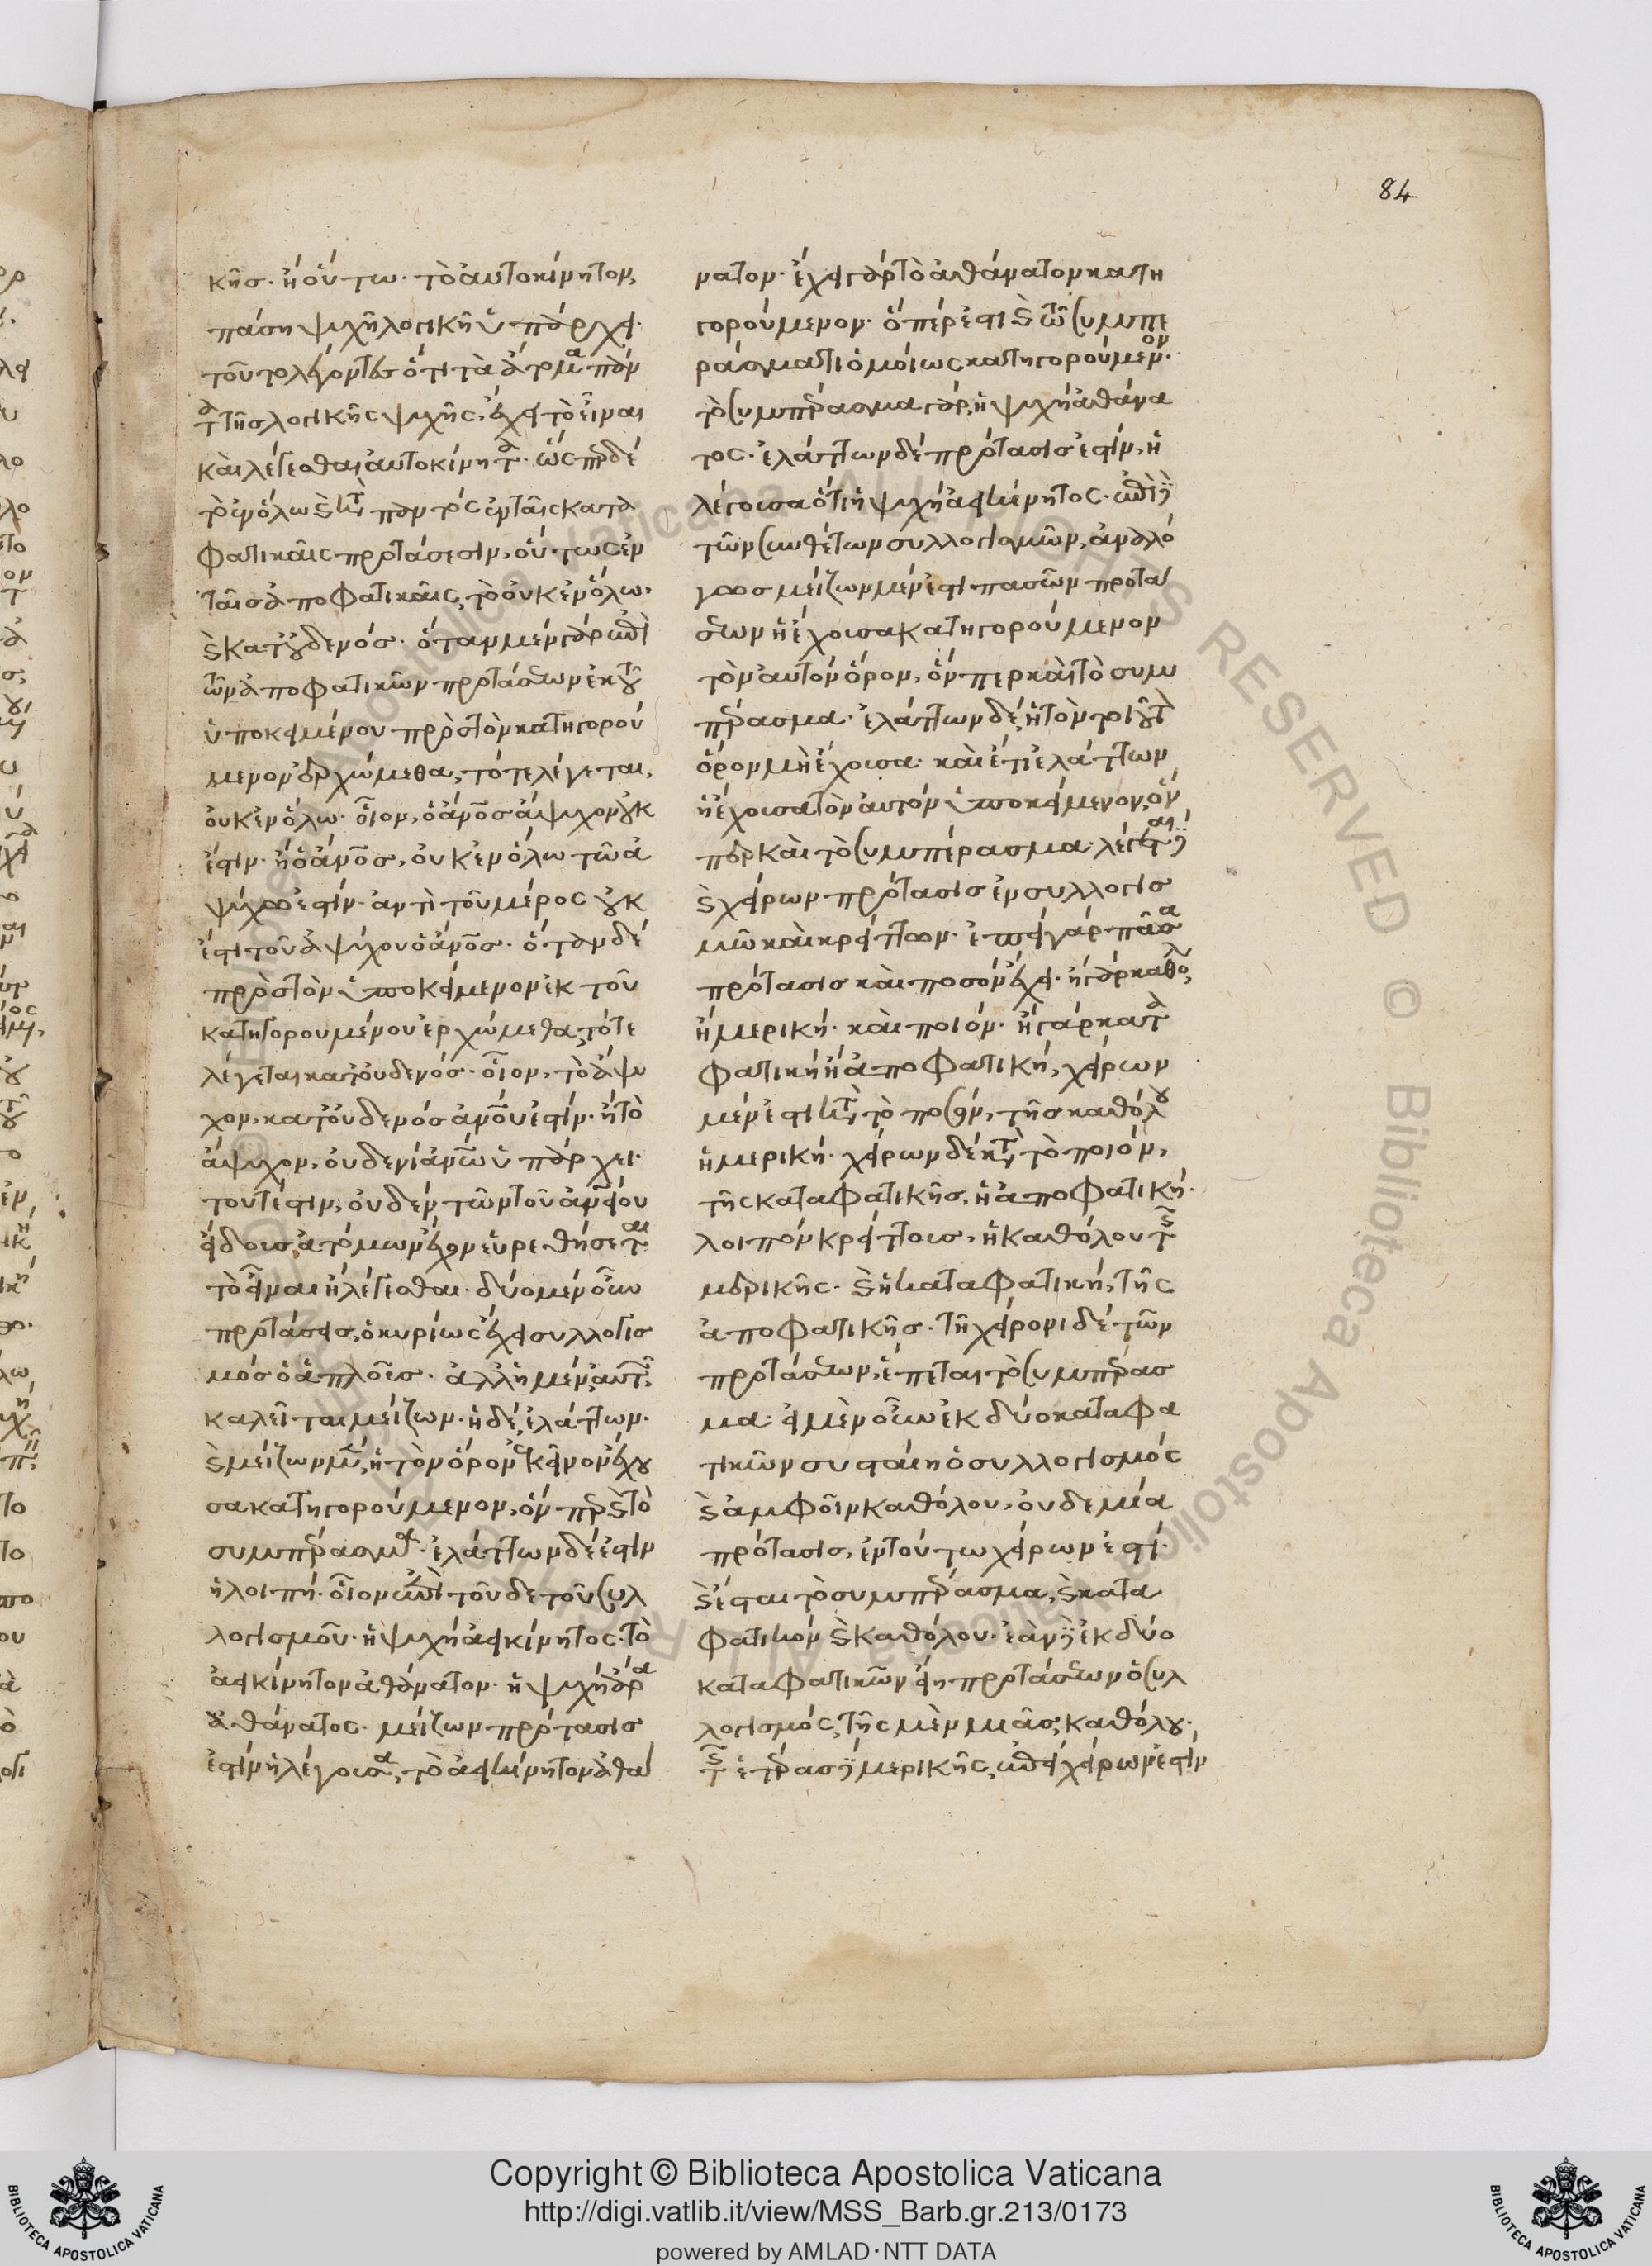 84
κῆς· ἢ οὕτω· τὸ αὐτοκίνητον,
πάσῃ ψυχῇ λογικῇ ὑπάρχει·
τοῦ λέγοντος ὅτι τὰ ἄτομα πάντα
τῆς λογικῆς ψυχῆς, ἔχει τὸ εἶναι
καὶ λέγεσθαι αὐτοκίνητα· ὥσπερ δὲ
τὸ ἐν ὅλω καὶ κατὰ παντὸς ἐν ταῖς κατα
φατικαῖς προτάσεσιν, οὕτως ἐν
ταῖς ἀποφατικαῖς, τὸ οὐκ ἐν ὅλω·
καὶ κατ' οὐδενός· ὅταν μὲν γὰρ ἐπὶ
τῶν ἀποφατικῶν προτάσεων ἐκ τοῦ
ὑποκειμένου πρὸς τὸν κατηγορού
μενον ἐρχώμεθα, τότε λέγεται,
οὐκ ἐν ὅλω· οἷον, ὁ ἄνος ἄψυχον οὐκ
ἔστιν· ἢ ὁ ἄνος, οὐκ ἐν ὅλω τῶ ἀ
ψύχω ἐστίν· ἀντὶ τοῦ μέρος οὐκ
ἔστι τοῦ ἀψύχου ὁ ἄνος· ὅταν δὲ
πρὸς τὸν ὑποκείμενον ἐκ τοῦ
κατηγορουμένου ἐρχώμεθα, τότε
λέγεται κατ' οὐδενός· οἷον, τὸ ἄψυ
χον, κατ' οὐδενὸς ἀνου ἐστίν· ἢ τὸ
ἄψυχον, οὐδενὶ ἀνω ὑπάρχει·
τουτέστιν, οὐδὲν τῶν τοῦ ἀνου
εἴδους ἀτόμων ἔχον εὑρεθήσεται
τὸ εἶναι ἢ λέγεσθαι· δύο μὲν οὖν
προτάσεις, ὁ κυρίως ἔχει συλλογισ
μὸς ὁ ἁπλοῦς· ἀλλ' ἡ μὲν αὐτῶν,
καλεῖται μείζων· ἡ δὲ, ἐλάττων·
καὶ μείζων μὲν, ἡ τὸν ὅρον ἐκεῖνον ἔχου
σα κατηγορούμενον, ὅνπερ καὶ τὸ
συμπέρασμα· ἐλάττων δέ ἐστιν
ἡ λοιπή· οἷον ὡς ἐπὶ τοῦδε τοῦ συλ
λογισμοῦ· ἡ ψυχὴ ἀεικίνητος· τὸ
ἀεικίνητον ἀθάνατον· ἡ ψυχὴ ἄρα
ἀθάνατος· μείζων πρότασις
ἐστὶν ἡ λέγουσα, τὸ ἀεικίνητον ἀθά
νατον· ἔχει γὰρ τὸ ἀθάνατον κατη
γορούμενον· ὅπερ ἐστὶ καὶ ἐν τῶ συμπε
ράσματι ὁμοίως κατηγορούμενον·
τὸ συμπέρασμα γὰρ, ἡ ψυχὴ ἀθάνα
τος· ἐλάττων δὲ πρότασίς ἐστιν, ἡ
λέγουσα ὅτι ἡ ψυχὴ ἀεικίνητος· ἐπὶ δὲ
τῶν συνθέτων συλλογισμῶν, ἀναλό
γως μείζων μέν ἐστι πασῶν προτά
σεων ἡ ἔχουσα κατηγορούμενον
τὸν αὐτὸν ὅρον, ὅνπερ καὶ τὸ συμ
πέρασμα· ἐλάττων δὲ, ἡ τὸν τοιοῦτον
ὅρον μὴ ἔχουσα· καὶ ἔτι ἐλάττων
ἡ ἔχουσα τὸν αὐτὸν ὑποκείμενον, ὅν
περ καὶ τὸ συμπέρασμα· λέγεται δὲ
καὶ χείρων πρότασις ἐν συλλογισ
μῶ καὶ κρείττων· ἐπεὶ γὰρ πᾶσα
πρότασις καὶ ποσὸν ἔχει· ἢ γὰρ καθόλου,
ἢ μερική· καὶ ποιόν· ἢ γὰρ κατα
φατικὴ ἢ ἀποφατική, χείρων
μέν ἐστι κατὰ τὸ ποσὸν, τῆς καθόλου
ἡ μερική· χείρων δὲ κατὰ τὸ ποιόν,
τῆς καταφατικῆς, ἡ ἀποφατική·
λοιπὸν κρείττους, ἡ καθόλου τῆς
μερικῆς· καὶ ἡ καταφατικὴ, τῆς
ἀποφατικῆς· τῆ χείρονι δὲ τῶν
προτάσεων, ἕπεται τὸ συμπέρασ
μα· εἰ μὲν οὖν ἐκ δύο καταφα
τικῶν συσταίη ὁ συλλογισμός
καὶ ἀμφοῖν καθόλου, οὐδεμία
πρότασις, ἐν τούτω χείρων ἐστί·
καὶ ἔσται τὸ συμπέρασμα, καὶ κατα
φατικὸν καὶ καθόλου· ἐὰν δὲ ἐκ δύο
καταφατικῶν εἴη προτάσεων ὁ συλ
λογισμός, τῆς μὲν μιᾶς, καθόλου·
τῆς ἑτέρας δὲ μερικῆς, ἐπεὶ χείρων ἐστὶν
Copyright © Biblioteca Apostolica Vaticana
http://digi.vatlib.it/view/MSS_Barb.gr.213/0173
powered by AMLAD·NTT DATA
BIBLIOTECA APOSTOLICA VATICANA
BIBLIOTECA APOSTOLICA VATICANA